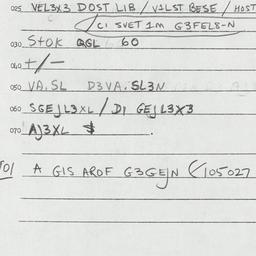 025 VEL3X3 DOST LIB / V1LST BESE / HOST
(CI SVET 1M G3FEL8-N
030 Stok QGL 60
040 +/-
050 VA.SL D3VA.SL3N
060 SGEJL3XL / DI GEJL3X3
070 AJ3XL $ .
701 A GIS AROF G3GEJN (105027